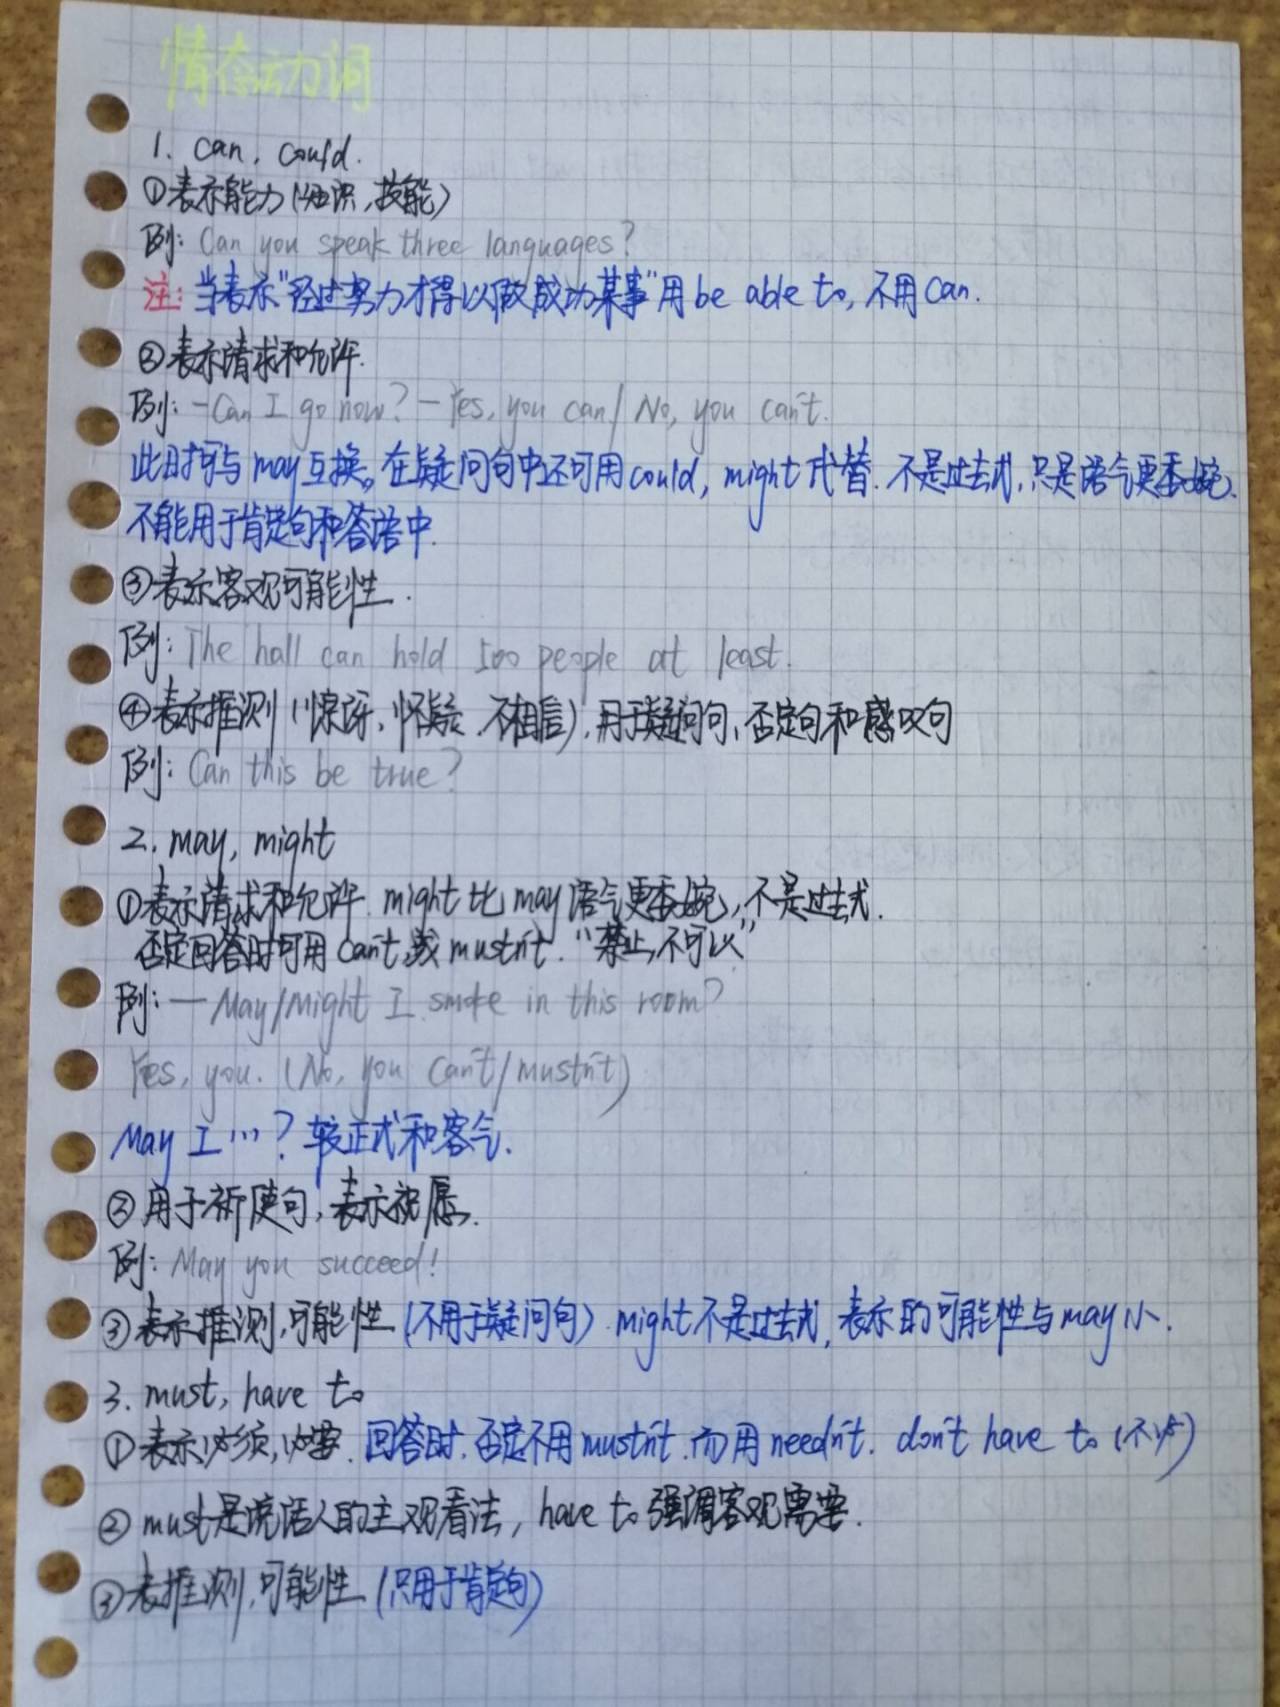 情态动词
1. can, could.
①表示能力(知识,技能)
例: Can you speak three languages?
注: 当表示"经过努力才得以做成功某事"用be able to, 不用can.
②表示请求和允许.
例: -Can I go now? - Yes, you can/ No, you can't.
此时可与may互换。在疑问句中还可用could, might代替. 不是过去式, 只是语气更委婉.
不能用于肯定句和答语中.
③表示客观可能性.
例: The hall can hold 500 people at least.
④表示推测(惊讶, 怀疑, 不相信), 用于疑问句, 否定句和感叹句
例: Can this be true?
2. may, might
①表示请求和允许. might比may语气更委婉, 不是过去式.
否定回答时可用can't或mustn't. "禁止,不可以"
例: — May/Might I smoke in this room?
Yes, you. (No, you can't/mustn't)
May I …? 较正式和客气.
②用于祈使句, 表示祝愿.
例: May you succeed!
③表示推测,可能性(不用于疑问句). might不是过去式, 表示的可能性与may小.
3. must, have to
①表示必须,必要. 回答时, 否定不用mustn't. 而用needn't. don't have to (不必)
②must是说话人的主观看法, have to强调客观需要.
③表推测,可能性(只用于肯定句)